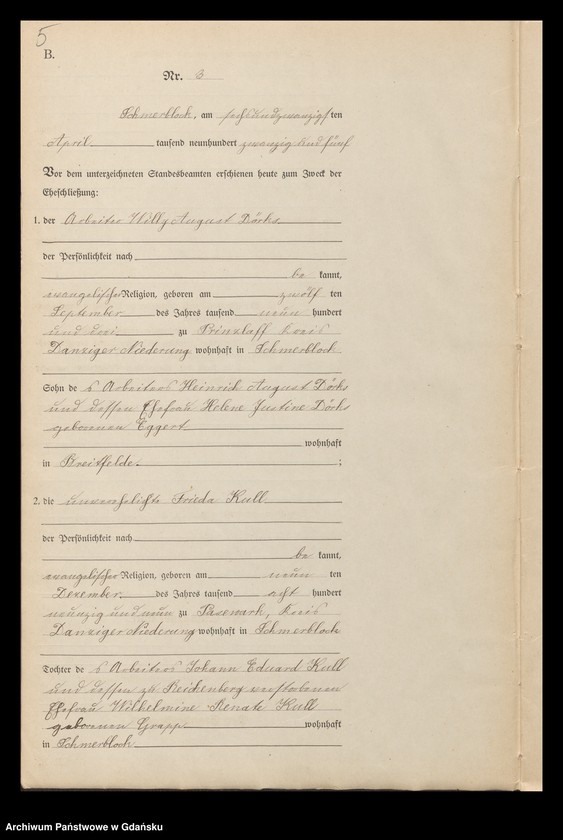 5
B.
Nr. 3
Schmerblock, am sechsundzwanzigsten
April tausend neunhundert zwanzig und fünf
Vor dem unterzeichneten Standesbeamten erschienen heute zum Zweck der
Eheschließung:
1. der Arbeiter Willy August Dörks
der Persönlichkeit nach
be kannt,
evangelischer Religion, geboren am zwölf ten
September des Jahres tausend neun hundert
und drei zu Prinzlaff Kreis
Danziger Niederung wohnhaft in Schmerblock
Sohn des Arbeiters Heinrich August Dörks
und dessen Ehefrau Helene Justine Dörks
geborenen Eggert
wohnhaft
in Breitfelde. ;
2. die unverehelichte Frieda Kull
der Persönlichkeit nach
be kannt,
evangelischer Religion, geboren am neun ten
Dezember des Jahres tausend acht hundert
neunzig und neun zu Pasewark, Kreis
Danziger Niederung wohnhaft in Schmerblock
Tochter des Arbeiters Johann Eduard Kull
und dessen zu Reichenberg verstorbenen
Ehefrau Wilhelmine Renate Kull
geborenen Grapp wohnhaft
in Schmerblock
Archiwum Państwowe w Gdańsku